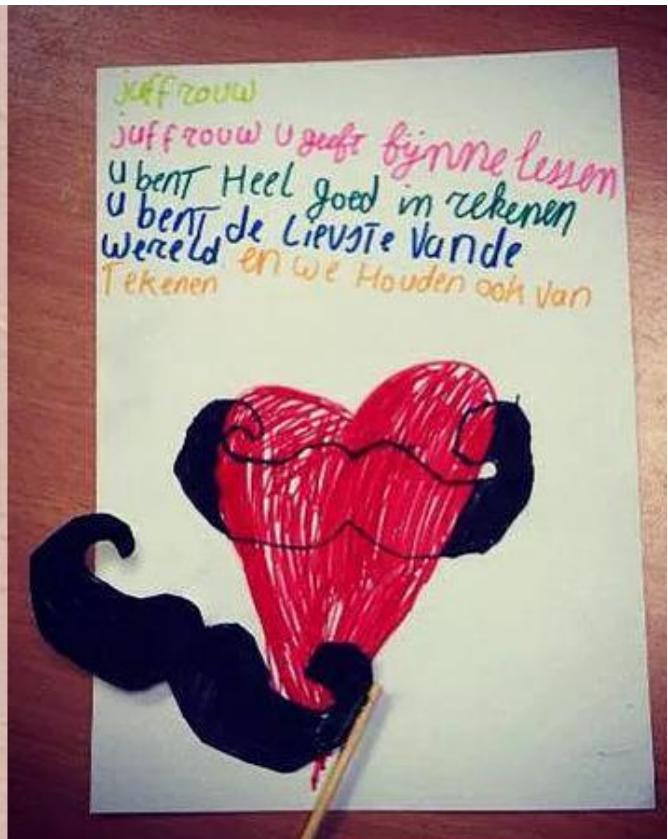 juffrouw
juffrouw u geeft fijnne lessen
u bent Heel goed in rekenen
u bent de Lievste Vande
wereld en we Houden ook van
Tekenen